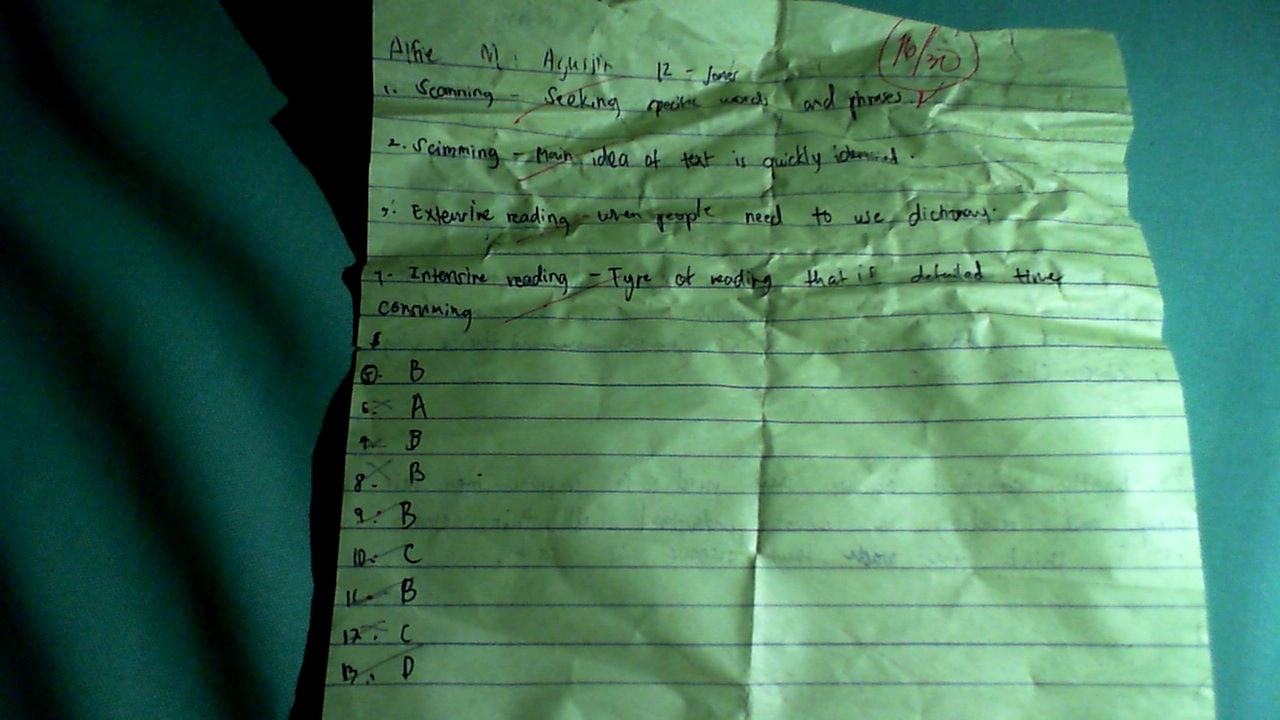 Alfie M. Agustin 12 - Jones
16/30
1. Scanning - Seeking specific words and phrases.
2. Scimming - Main idea of text is quickly
3. Extensive reading - when people need to use dictionary.
4. Intensive reading - Type of reading that is detailed time
consuming
5. B
6. A
7. B
8. B
9. B
10. C
11. B
12. C
13. D